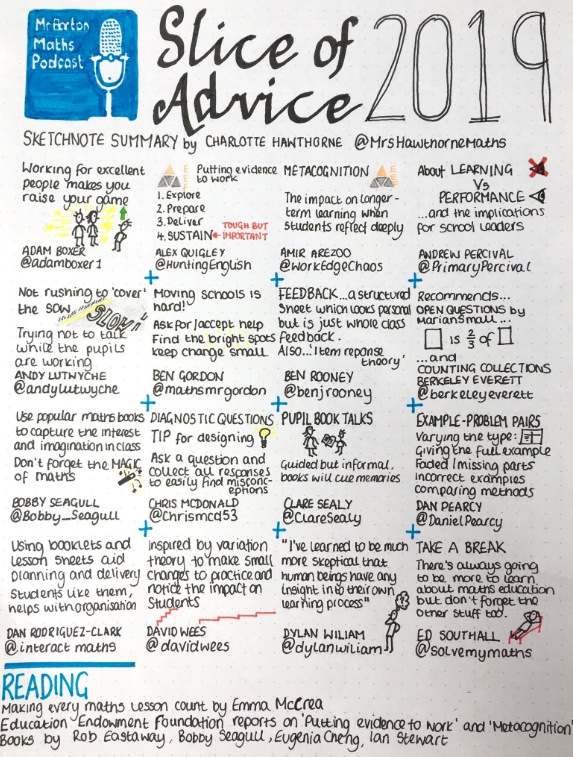 Mr Barton
Maths
Podcast
Slice of
Advice
2019
SKETCHNOTE SUMMARY by CHARLOTTE HAWTHORNE @MrsHawthorneMaths
Working for excellent
people makes you
raise your game
ADAM BOXER
@adamboxer1
Putting evidence
to work
1. Explore
2. Prepare
3. Deliver
4. SUSTAIN
TOUGH BUT
IMPORTANT
ALEX QUIGLEY
@HuntingEnglish
METACOGNITION
The impact on longer-
term learning when
students reflect deeply
AMIR AREZOO
@workEdgeChaos
About LEARNING
Vs
PERFORMANCE
...and the implications
for school leaders
ANDREW PERCIVAL
@PrimaryPercival
Not rushing to 'cover'
the SOW
SLOW!
Trying not to talk
while the pupils
are working
ANDY LUTWYCHE
@andylutwyche
Moving schools is
hard!
Ask for/accept help
Find the bright spots
keep change small
BEN GORDON
@mathsmrgordon
FEEDBACK...a structured
sheet which looks personal
but is just whole class
feedback.
Also...'item reponse
theory'
BEN ROONEY
@benjrooney
Recommends...
OPEN QUESTIONS by
Marian Small...
is 2/3 of
...and
COUNTING COLLECTIONS
BERKELEY EVERETT
@berkeleyeverett
Use popular maths books
to capture the interest
and imagination in class
Don't forget the MAGIC
of maths
BOBBY SEAGULL
@Bobby_Seagull
DIAGNOSTIC QUESTIONS
TIP for designing
Ask a question and
collect all responses
to easily find misconc-
eptions
CHRIS MCDONALD
@Chrismcd53
PUPIL BOOK TALKS
Guided but informal,
books will cue memories
CLARE SEALY
@ClareSealy
EXAMPLE-PROBLEM PAIRS
Varying the type:
Giving the full example
Faded/missing parts
incorrect examples
comparing methods
DAN PEARCY
@DanielPearcy
Using booklets and
lesson sheets aid
planning and delivery
Students like them,
helps with organisation
DAN RODRIGUEZ-CLARK
@interactmaths
Inspired by variation
theory to make small
changes to practice and
notice the impact on
students
DAVID WEES
@davidwees
"I've learned to be much
more skeptical that
human beings have any
insight in to their own
learning process"
DYLAN WILIAM
@dylanwiliam
TAKE A BREAK
There's always going
to be more to learn
about maths education
but don't forget the
other stuff too.
ED SOUTHALL
@solvemymaths
READING
Making every maths lesson count by Emma McCrea
Education Endowment Foundation reports on 'Putting evidence to work' and 'Metacognition'
Books by Rob Eastaway, Bobby Seagull, Eugenia Cheng, Ian Stewart